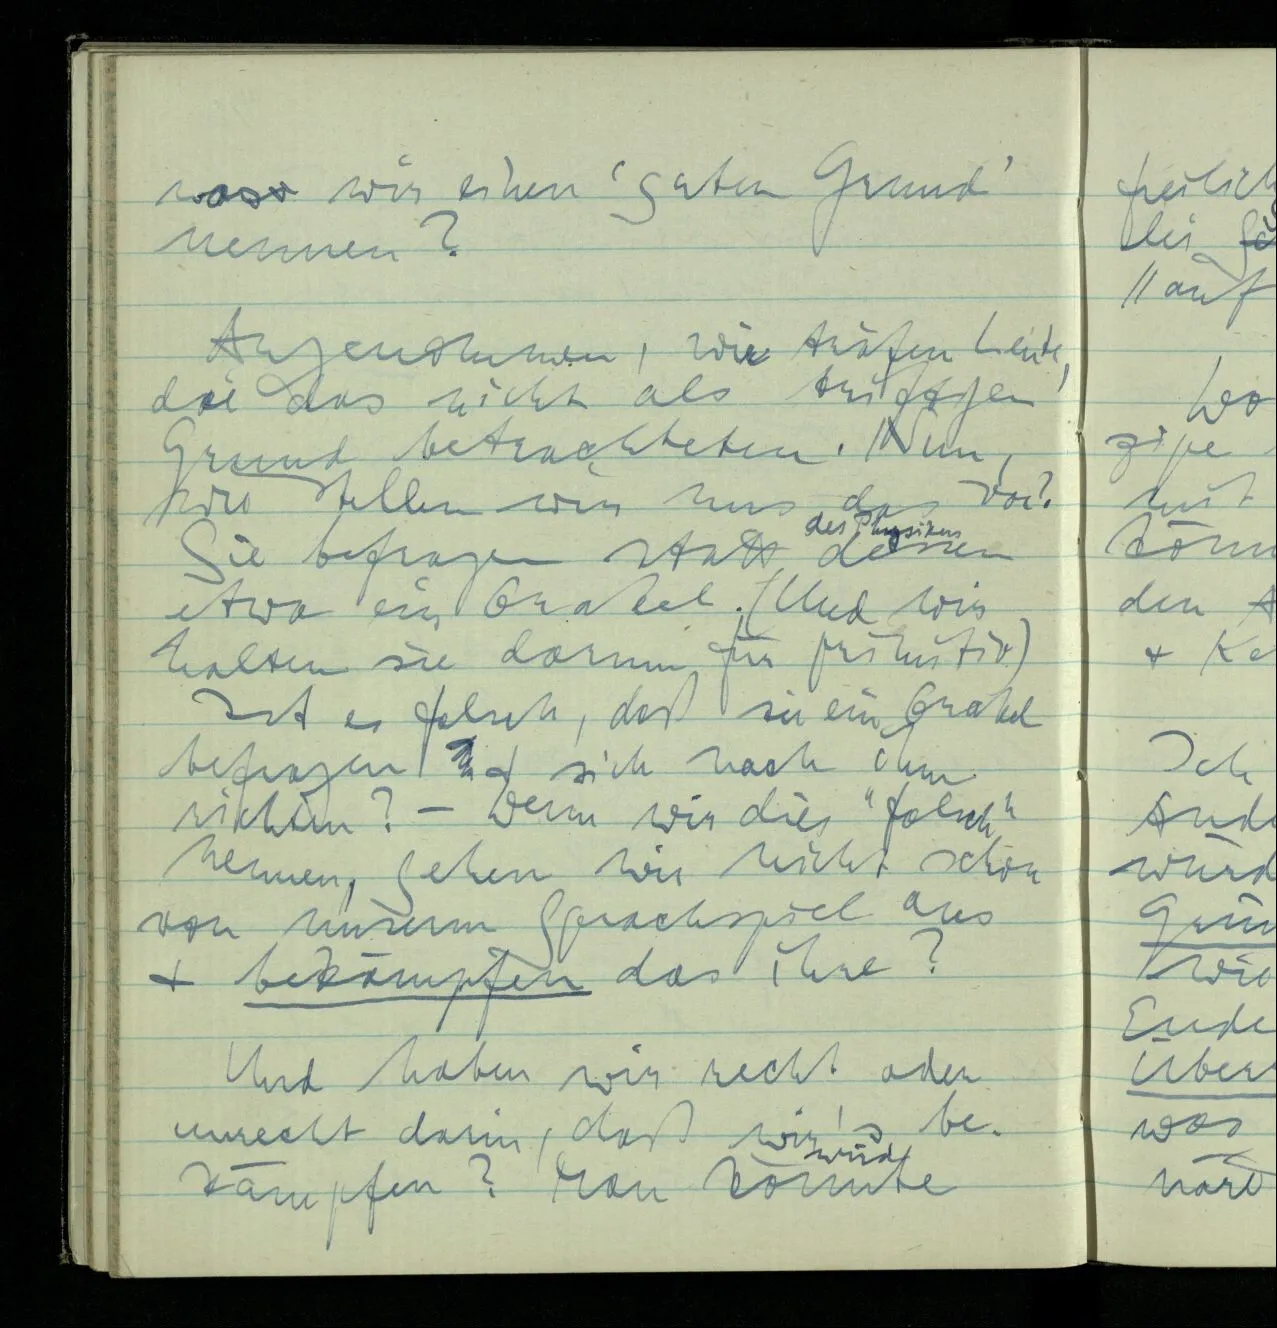 was wir einen ‘guten Grund’
nennen?
Angenommen, wir träfen Leute,
die das nicht als triftigen
Grund betrachteten. Nun,
wie stellen wir uns das vor?
des Physikers
Sie befragen statt dessen
etwa ein Orakel. (Und wir
halten sie darum für primitiv)
Ist es falsch, daß sie ein Orakel
befragen & sich nach ihm
richten? – Wenn wir dies “falsch”
nennen, gehen wir nicht schon
von unserm Sprachspiel aus
+ bekämpfen das ihre?
Und haben wir recht oder
unrecht darin, daß wir's be-
wird
kämpfen? Man könnte
freilich
bei
// auf
Wo
zipe
mit
könn
den A
+ Ke
Ich
Ande
würd
Grün
wie
Ende
Über
was